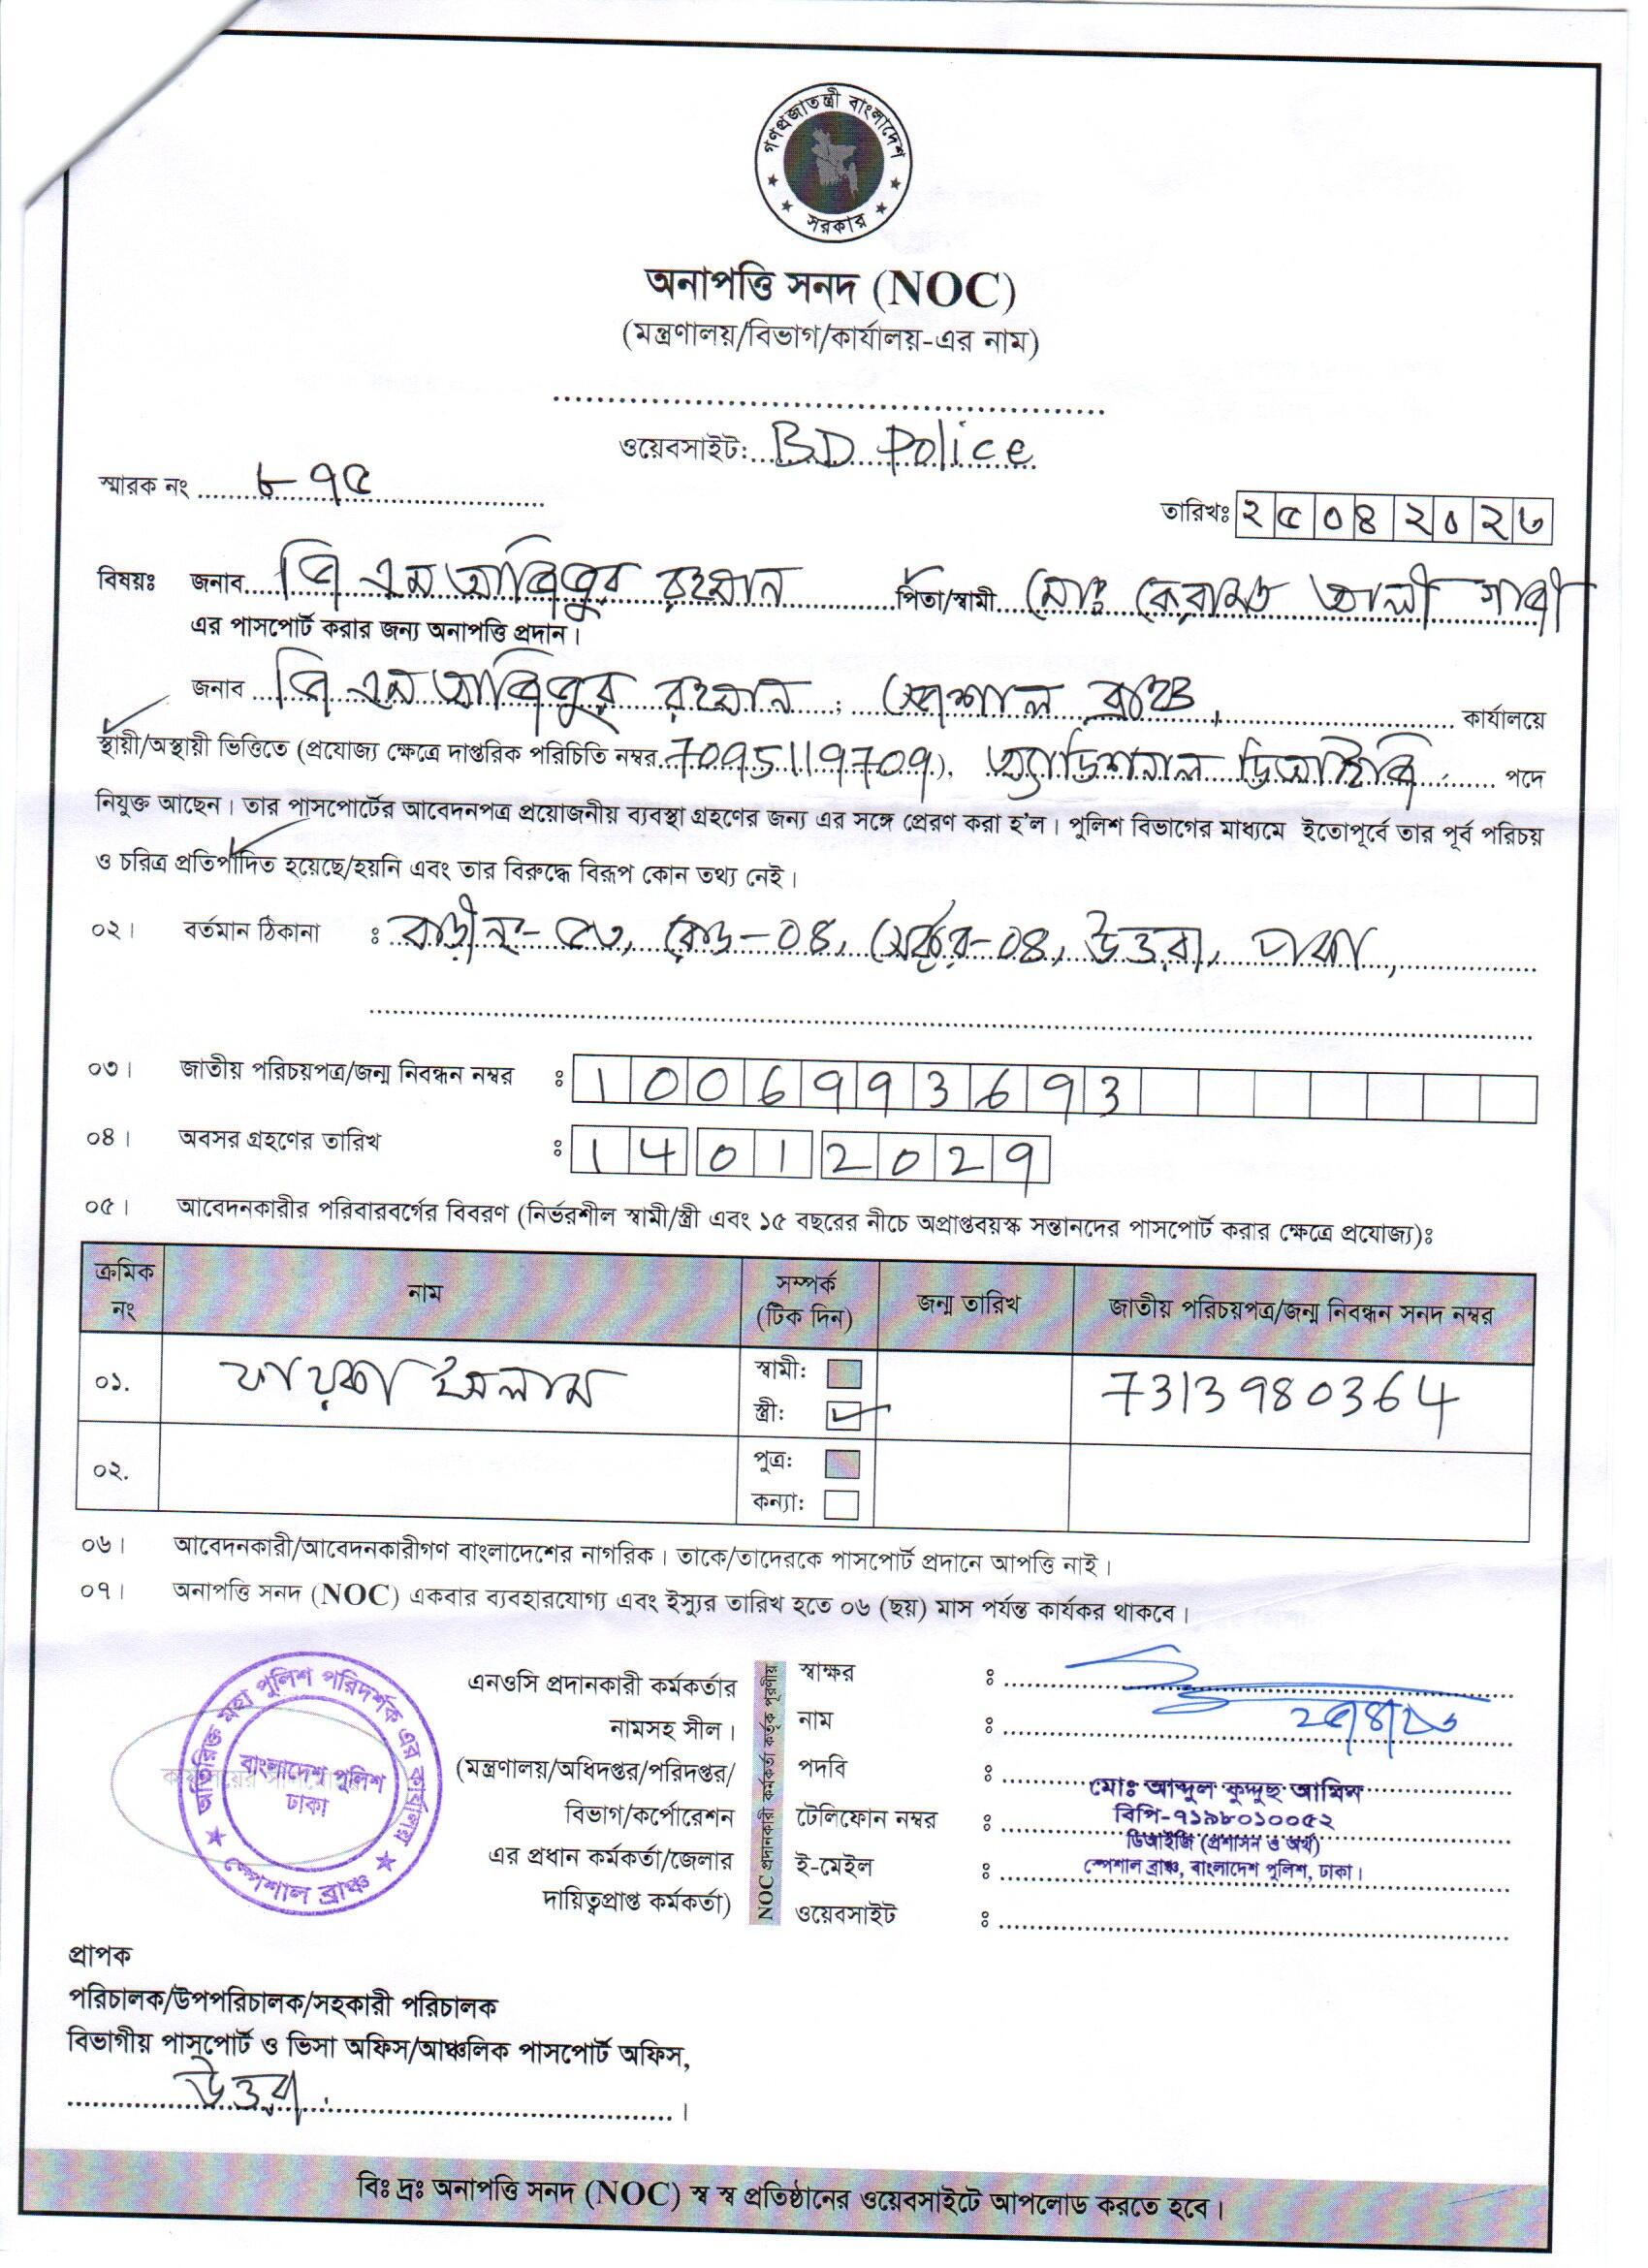 গণপ্রজাতন্ত্রী বাংলাদেশ
সরকার
অনাপত্তি সনদ (NOC)
(মন্ত্রণালয়/বিভাগ/কার্যালয়-এর নাম)
ওয়েবসাইট: BD Police
স্মারক নং ৮৭৫
তারিখঃ ২৫০৪২০২৬
বিষয়ঃ জনাব জি এম আজিজুর রহমান পিতা/স্বামী মোঃ কেরামত আলী গাজী
এর পাসপোর্ট করার জন্য অনাপত্তি প্রদান।
জনাব জি এম আজিজুর রহমান, স্পেশাল ব্রাঞ্চ, কার্যালয়ে
স্থায়ী/অস্থায়ী ভিত্তিতে (প্রযোজ্য ক্ষেত্রে দাপ্তরিক পরিচিতি নম্বর 7095119709), অ্যাডিশনাল ডিআইজি পদে
নিযুক্ত আছেন। তার পাসপোর্টের আবেদনপত্র প্রয়োজনীয় ব্যবস্থা গ্রহণের জন্য এর সঙ্গে প্রেরণ করা হ'ল। পুলিশ বিভাগের মাধ্যমে ইতোপূর্বে তার পূর্ব পরিচয়
ও চরিত্র প্রতিপাদিত হয়েছে/হয়নি এবং তার বিরুদ্ধে বিরূপ কোন তথ্য নেই।
০২। বর্তমান ঠিকানা ঃ বাড়ী নং- ৫৩, রোড-০৪, সেক্টর-০৪, উত্তরা, ঢাকা,
০৩। জাতীয় পরিচয়পত্র/জন্ম নিবন্ধন নম্বর ঃ 1006993693
০৪। অবসর গ্রহণের তারিখ ঃ 14012029
০৫। আবেদনকারীর পরিবারবর্গের বিবরণ (নির্ভরশীল স্বামী/স্ত্রী এবং ১৫ বছরের নীচে অপ্রাপ্তবয়স্ক সন্তানদের পাসপোর্ট করার ক্ষেত্রে প্রযোজ্য)ঃ
ক্রমিক নং নাম সম্পর্ক (টিক দিন) জন্ম তারিখ জাতীয় পরিচয়পত্র/জন্ম নিবন্ধন সনদ নম্বর
০১. ইসলাম স্বামী: 7313980364
স্ত্রী:
০২. পুত্র:
কন্যা:
০৬। আবেদনকারী/আবেদনকারীগণ বাংলাদেশের নাগরিক। তাকে/তাদেরকে পাসপোর্ট প্রদানে আপত্তি নাই।
০৭। অনাপত্তি সনদ (NOC) একবার ব্যবহারযোগ্য এবং ইস্যুর তারিখ হতে ০৬ (ছয়) মাস পর্যন্ত কার্যকর থাকবে।
অতিরিক্ত মহা পুলিশ পরিদর্শক এর কার্যালয়
বাংলাদেশ পুলিশ
ঢাকা
স্পেশাল ব্রাঞ্চ
এনওসি প্রদানকারী কর্মকর্তার
নামসহ সীল।
(মন্ত্রণালয়/অধিদপ্তর/পরিদপ্তর/
বিভাগ/কর্পোরেশন
এর প্রধান কর্মকর্তা/জেলার
দায়িত্বপ্রাপ্ত কর্মকর্তা)
NOC প্রদানকারী কর্মকর্তা কর্তৃক পূরণীয়
স্বাক্ষর ঃ
নাম ঃ
পদবি ঃ
মোঃ আব্দুল কুদ্দুছ আমিন
টেলিফোন নম্বর ঃ বিপি-৭১৯৮০১০০৫২
ডিআইজি (প্রশাসন ও অর্থ)
ই-মেইল ঃ স্পেশাল ব্রাঞ্চ, বাংলাদেশ পুলিশ, ঢাকা।
ওয়েবসাইট ঃ
প্রাপক
পরিচালক/উপপরিচালক/সহকারী পরিচালক
বিভাগীয় পাসপোর্ট ও ভিসা অফিস/আঞ্চলিক পাসপোর্ট অফিস,
উত্তরা।
বিঃ দ্রঃ অনাপত্তি সনদ (NOC) স্ব স্ব প্রতিষ্ঠানের ওয়েবসাইটে আপলোড করতে হবে।